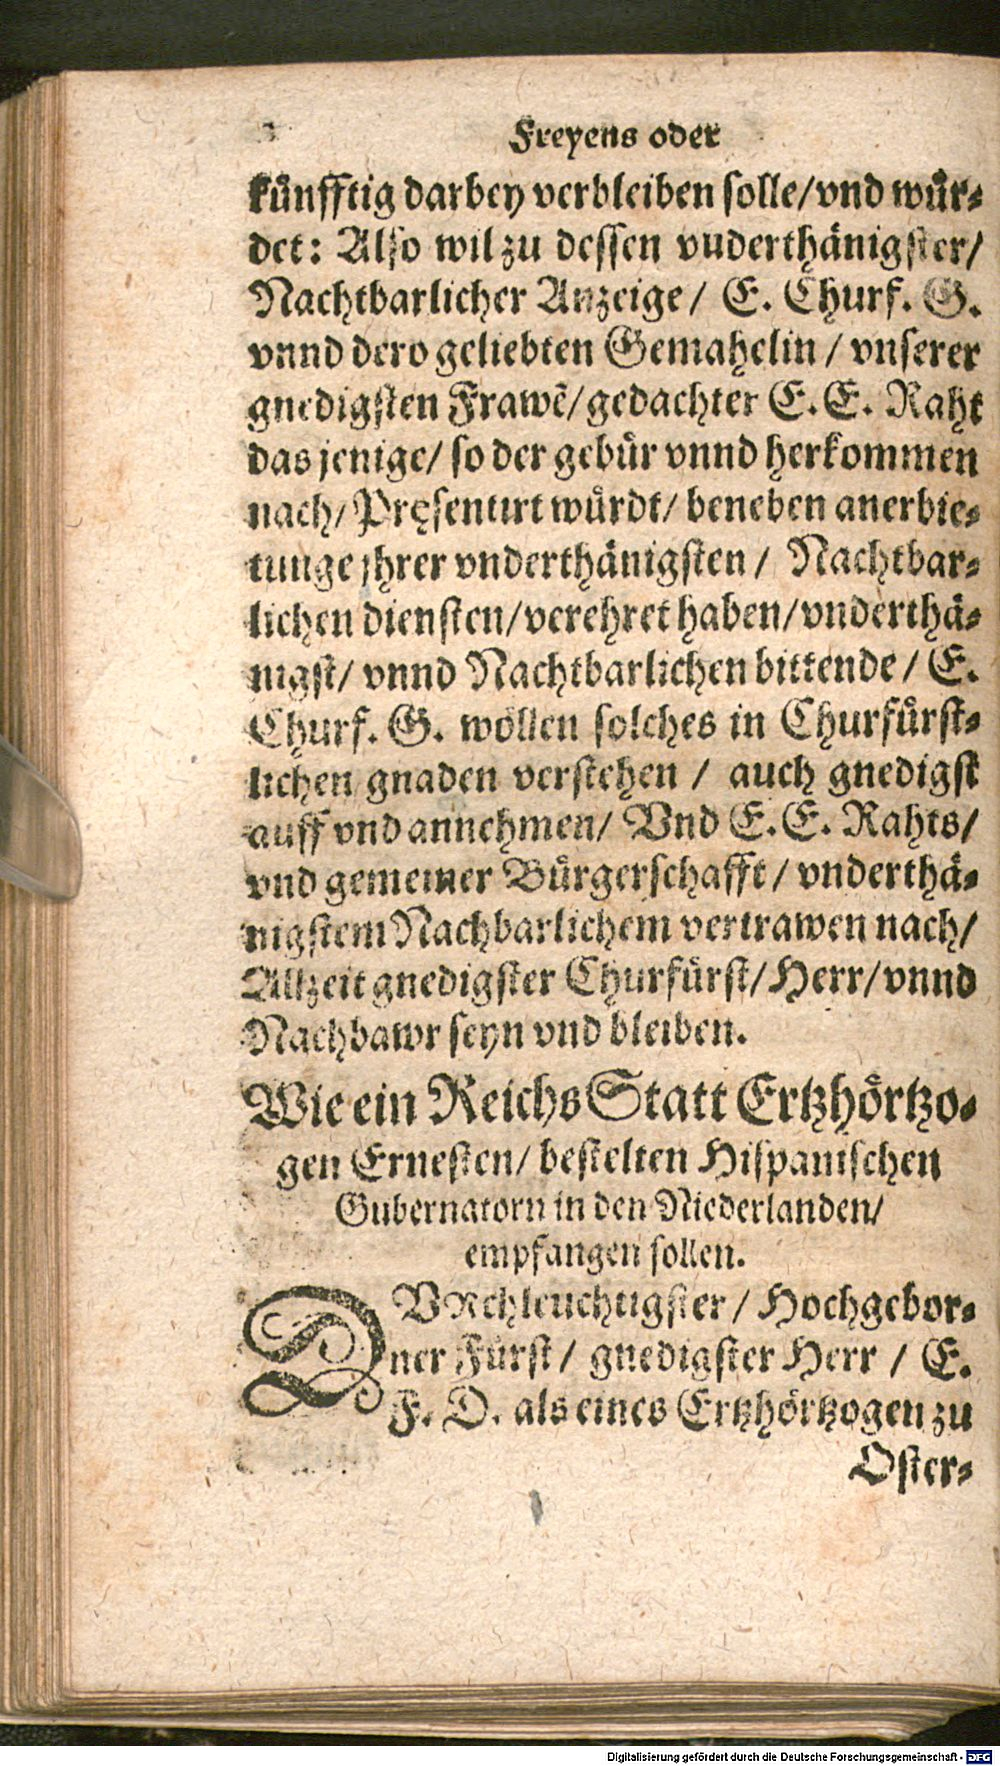 Freyens oder
künfftig darbey verbleiben solle/vnd wür-
det: Also wil zu dessen vuderthänigster/
Nachtbarlicher Anzeige/ E. Churf. G.
vnnd dero geliebten Gemahelin / vnserer
gnedigsten Frawẽ/gedachter E. E. Raht
das jenige/ so der gebür vnnd herkommen
nach/ Pręsentirt würdt/ beneben anerbie-
tunge jhrer vnderthänigsten / Nachtbar-
lichen diensten/verehret haben/vnderthä-
nigst/ vnnd Nachtbarlichen bittende / E.
Churf. G. wöllen solches in Churfürst-
lichen gnaden verstehen / auch gnedigst
auff vnd annehmen/ Vnd E. E. Rahts/
vnd gemeiner Bürgerschafft / vnderthä-
nigstem Nachbarlichem vertrawen nach/
Allzeit gnedigster Churfürst/Herr/vnnd
Nachbawr seyn vnd bleiben.
Wie ein Reichs Statt Ertzhörtzo-
gen Ernesten/ bestelten Hispanischen
Gubernatorn in den Niederlanden/
empfangen sollen.
DVRchleuchtigster / Hochgebor-
ner Fürst / gnedigster Herr / E.
F. D. als eines Ertzhörtzogen zu
Oster-
Digitalisierung gefördert durch die Deutsche Forschungsgemeinschaft - DFG